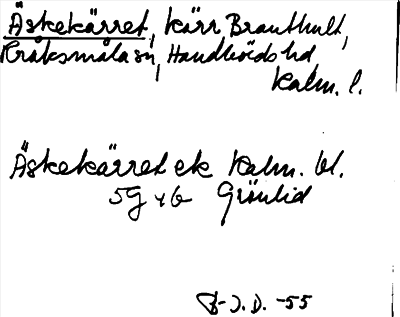 Äskekärret, kärr, Branthult,
Kråksmåla sn, Handbörds hd,
Kalm. l.
Äskekärret ek Kalm. bl.
5G
Grönlid
-55